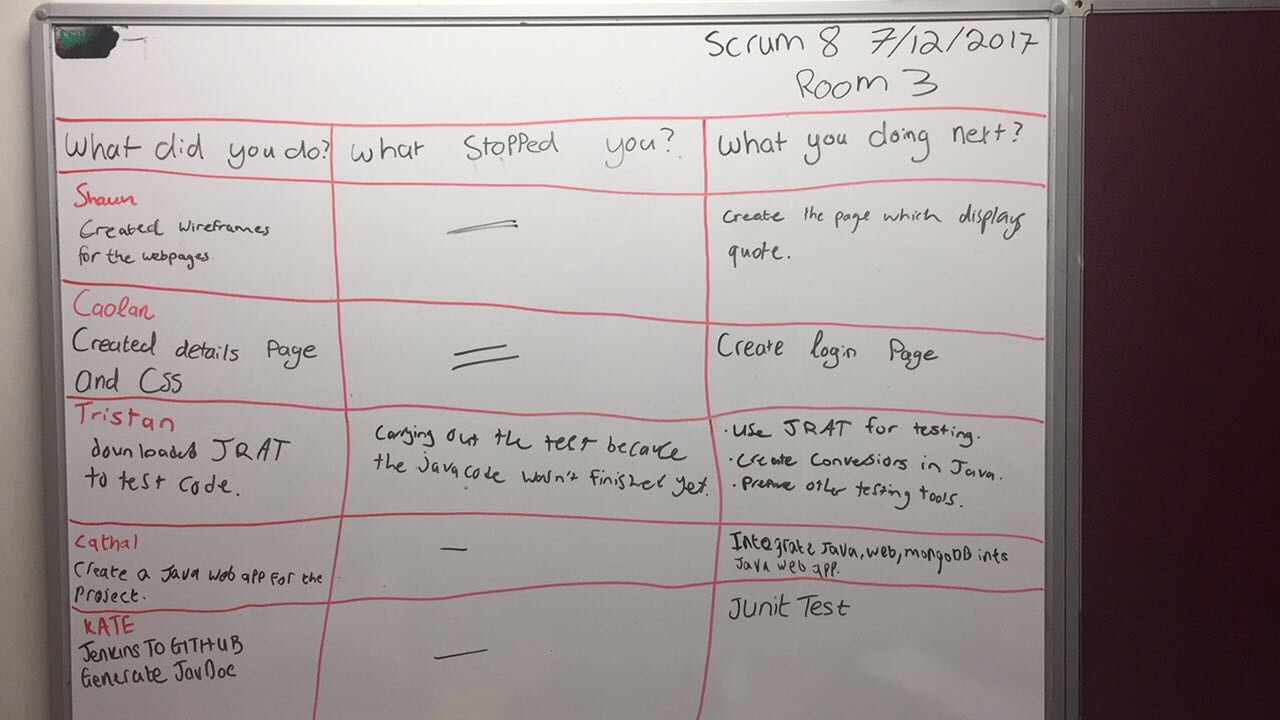 Scrum 8 7/12/2017
Room 3
What did you do?
What stopped you?
What you doing next?
Shaun
Created wireframes
for the webpages
Create the page which display
quote.
Caolan
Created details Page
and Css
Create login Page
Tristan
downloaded JRAT
to test code.
Carrying out the test because
the java code wasn't finished yet.
· Use JRAT for testing.
· Create Conversions in Java.
· Prepare other testing tools.
Cathal
Create a Java web app for the
Project.
Integrate Java, web, mongoDB into
Java web app.
KATE
Jenkins TO GITHUB
Generate JavDoc
Junit Test